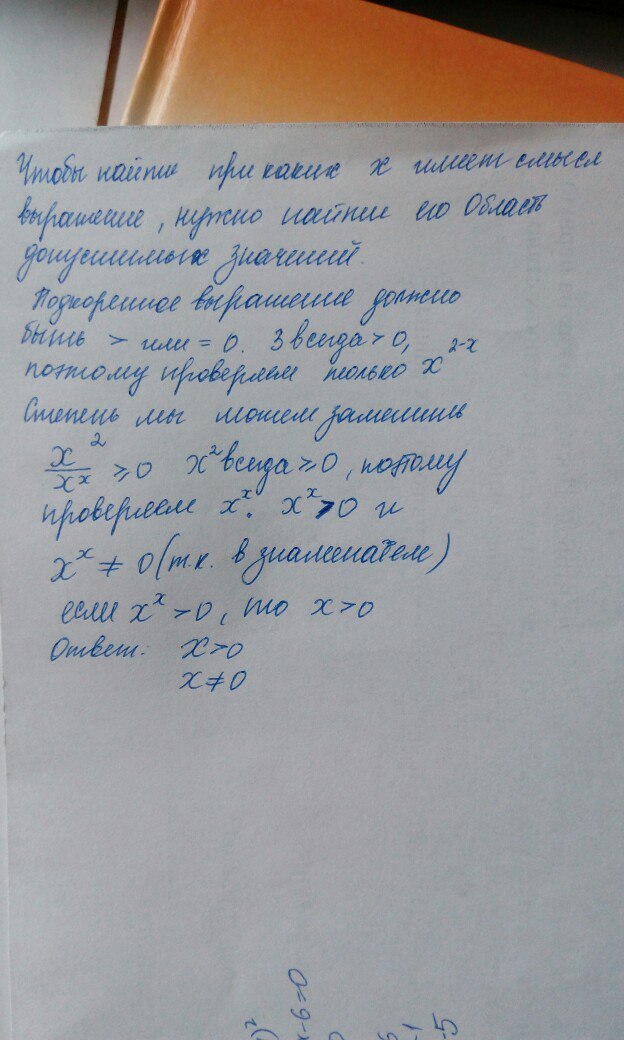 Чтобы найти при каких x имеет смысл
выражение, нужно найти его Область
допустимых значений.
Подкоренное выражение должно
быть > или = 0. 3 всегда > 0,
поэтому проверяем только x^(2-x)
Степень мы можем заменить
x^2/x^x ≥ 0 x^2 всегда ≥ 0, поэтому
проверяем x^x. x^x > 0 и
x^x ≠ 0 (т.к. в знаменателе)
если x^x > 0, то x > 0
Ответ: x > 0
x ≠ 0
x-6=0
-5